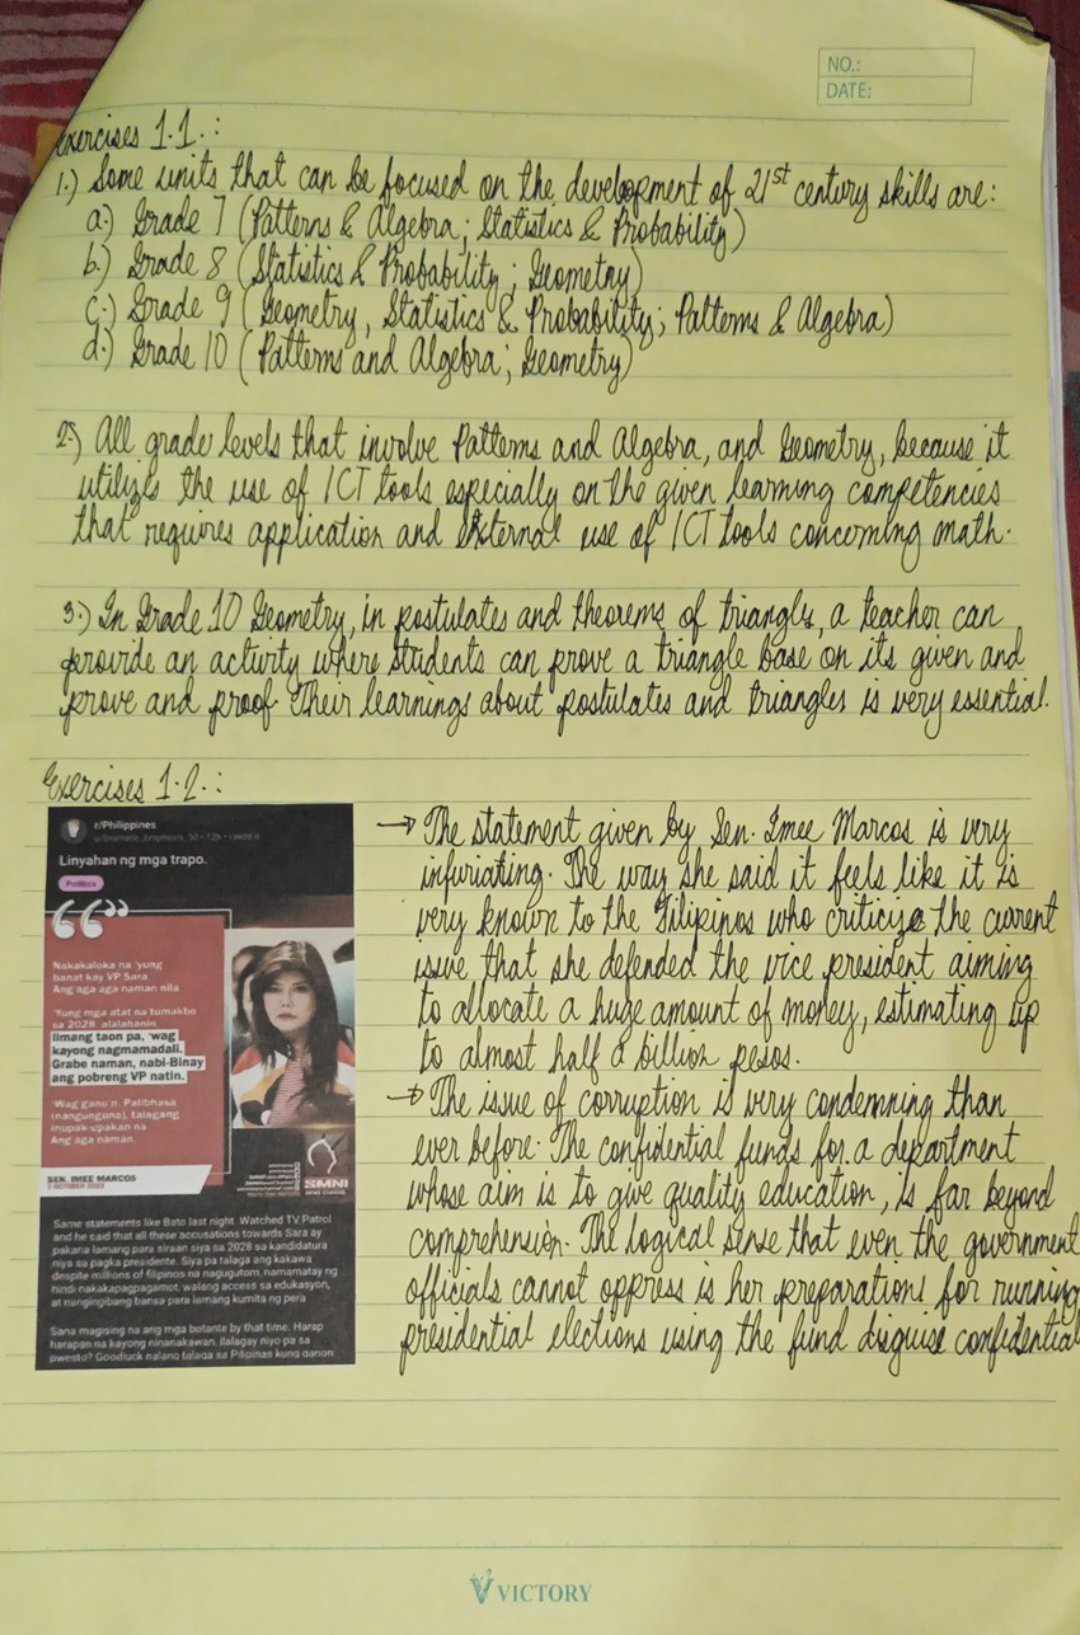 NO.:
DATE:
Exercises 1.1.:
1.) Some units that can be focused on the development of 21st century skills are:
a.) Grade 7 (Patterns & Algebra; Statistics & Probability)
b.) Grade 8 (Statistics & Probability; Geometry)
c.) Grade 9 (Geometry, Statistics & Probability; Patterns & Algebra)
d.) Grade 10 (Patterns and Algebra; Geometry)
2.) All grade levels that involve Patterns and Algebra, and Geometry, because it
utilizes the use of ICT tools especially on the given learning competencies
that requires application and external use of ICT tools concerning math.
3.) In Grade 10 Geometry, in postulates and theorems of triangles, a teacher can
provide an activity where students can prove a triangle base on its given and
prove and proof. Their learnings about postulates and triangles is very essential.
Exercises 1.2.:
r/Philippines
Linyahan ng mga trapo.
Politics
Nakakaloka na 'yung
banat kay VP Sara.
Ang aga aga naman nila
'Yung mga atat na tumakbo
sa 2028, alalahanin
limang taon pa, 'wag
kayong nagmamadali.
Grabe naman, nabi-Binay
ang pobreng VP natin.
'Wag gano'n. Palibhasa
(nangunguna), talagang
inupak-upakan na
Ang aga naman.
SEN. IMEE MARCOS
SMNI
Same statements like Bato last night. Watched TV Patrol
and he said that all these accusations towards Sara ay
pakana lamang para siraan siya sa 2028 sa kandidatura
niya sa pagka presidente. Siya pa talaga ang kakawa
despite millions of filipinos na nagugutom, namamatay ng
hindi nakakapagpagamot, walang access sa edukasyon,
at nangingibang bansa para lamang kumita ng pera
Sana magising na ang mga botante by that time. Harap
harapan na kayong ninanakawan, ilalagay niyo pa sa
pwesto? Goodluck nalang talaga sa Pilipinas kung ganon
→ The statement given by Sen. Imee Marcos is very
infuriating. The way she said it feels like it is
very known to the Filipinos who criticize the current
issue that she defended the vice president aiming
to allocate a huge amount of money, estimating up
to almost half a billion pesos.
→ The issue of corruption is very condemning than
ever before. The confidential funds for a department
whose aim is to give quality education, is far beyond
comprehension. The logical sense that even the government
officials cannot oppress is her preparations for running
presidential elections using the fund disguise confidential
VICTORY